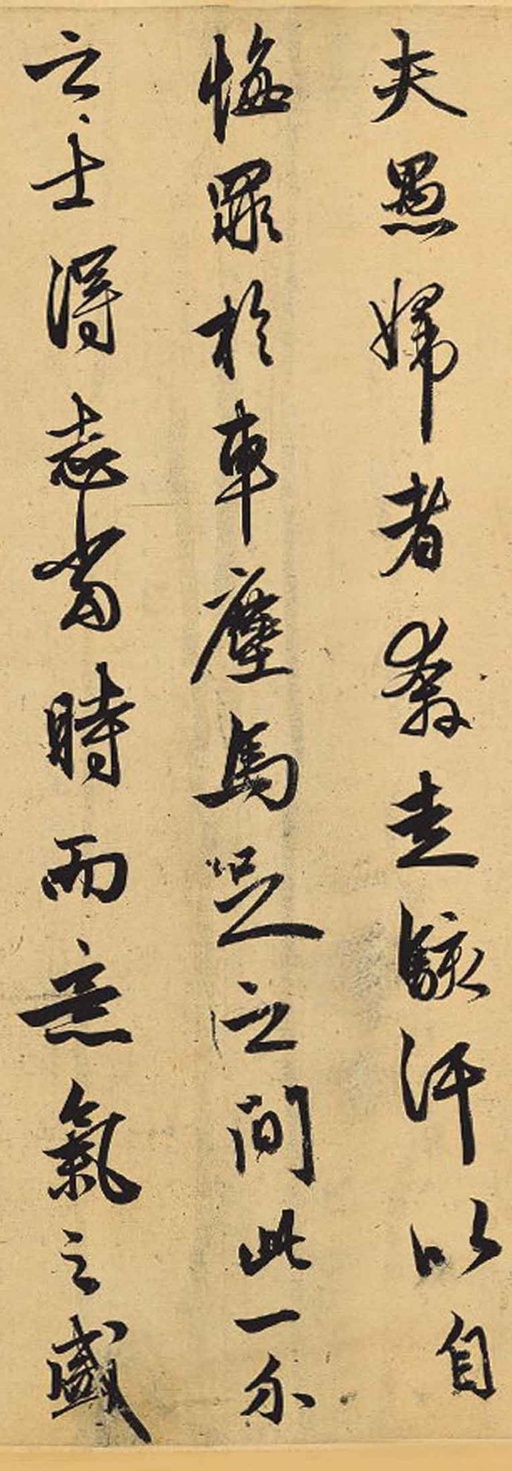 夫愚婦者奔走駭汗以自
悔罪於車塵馬足之間此一介
之士得志當時而意氣之盛